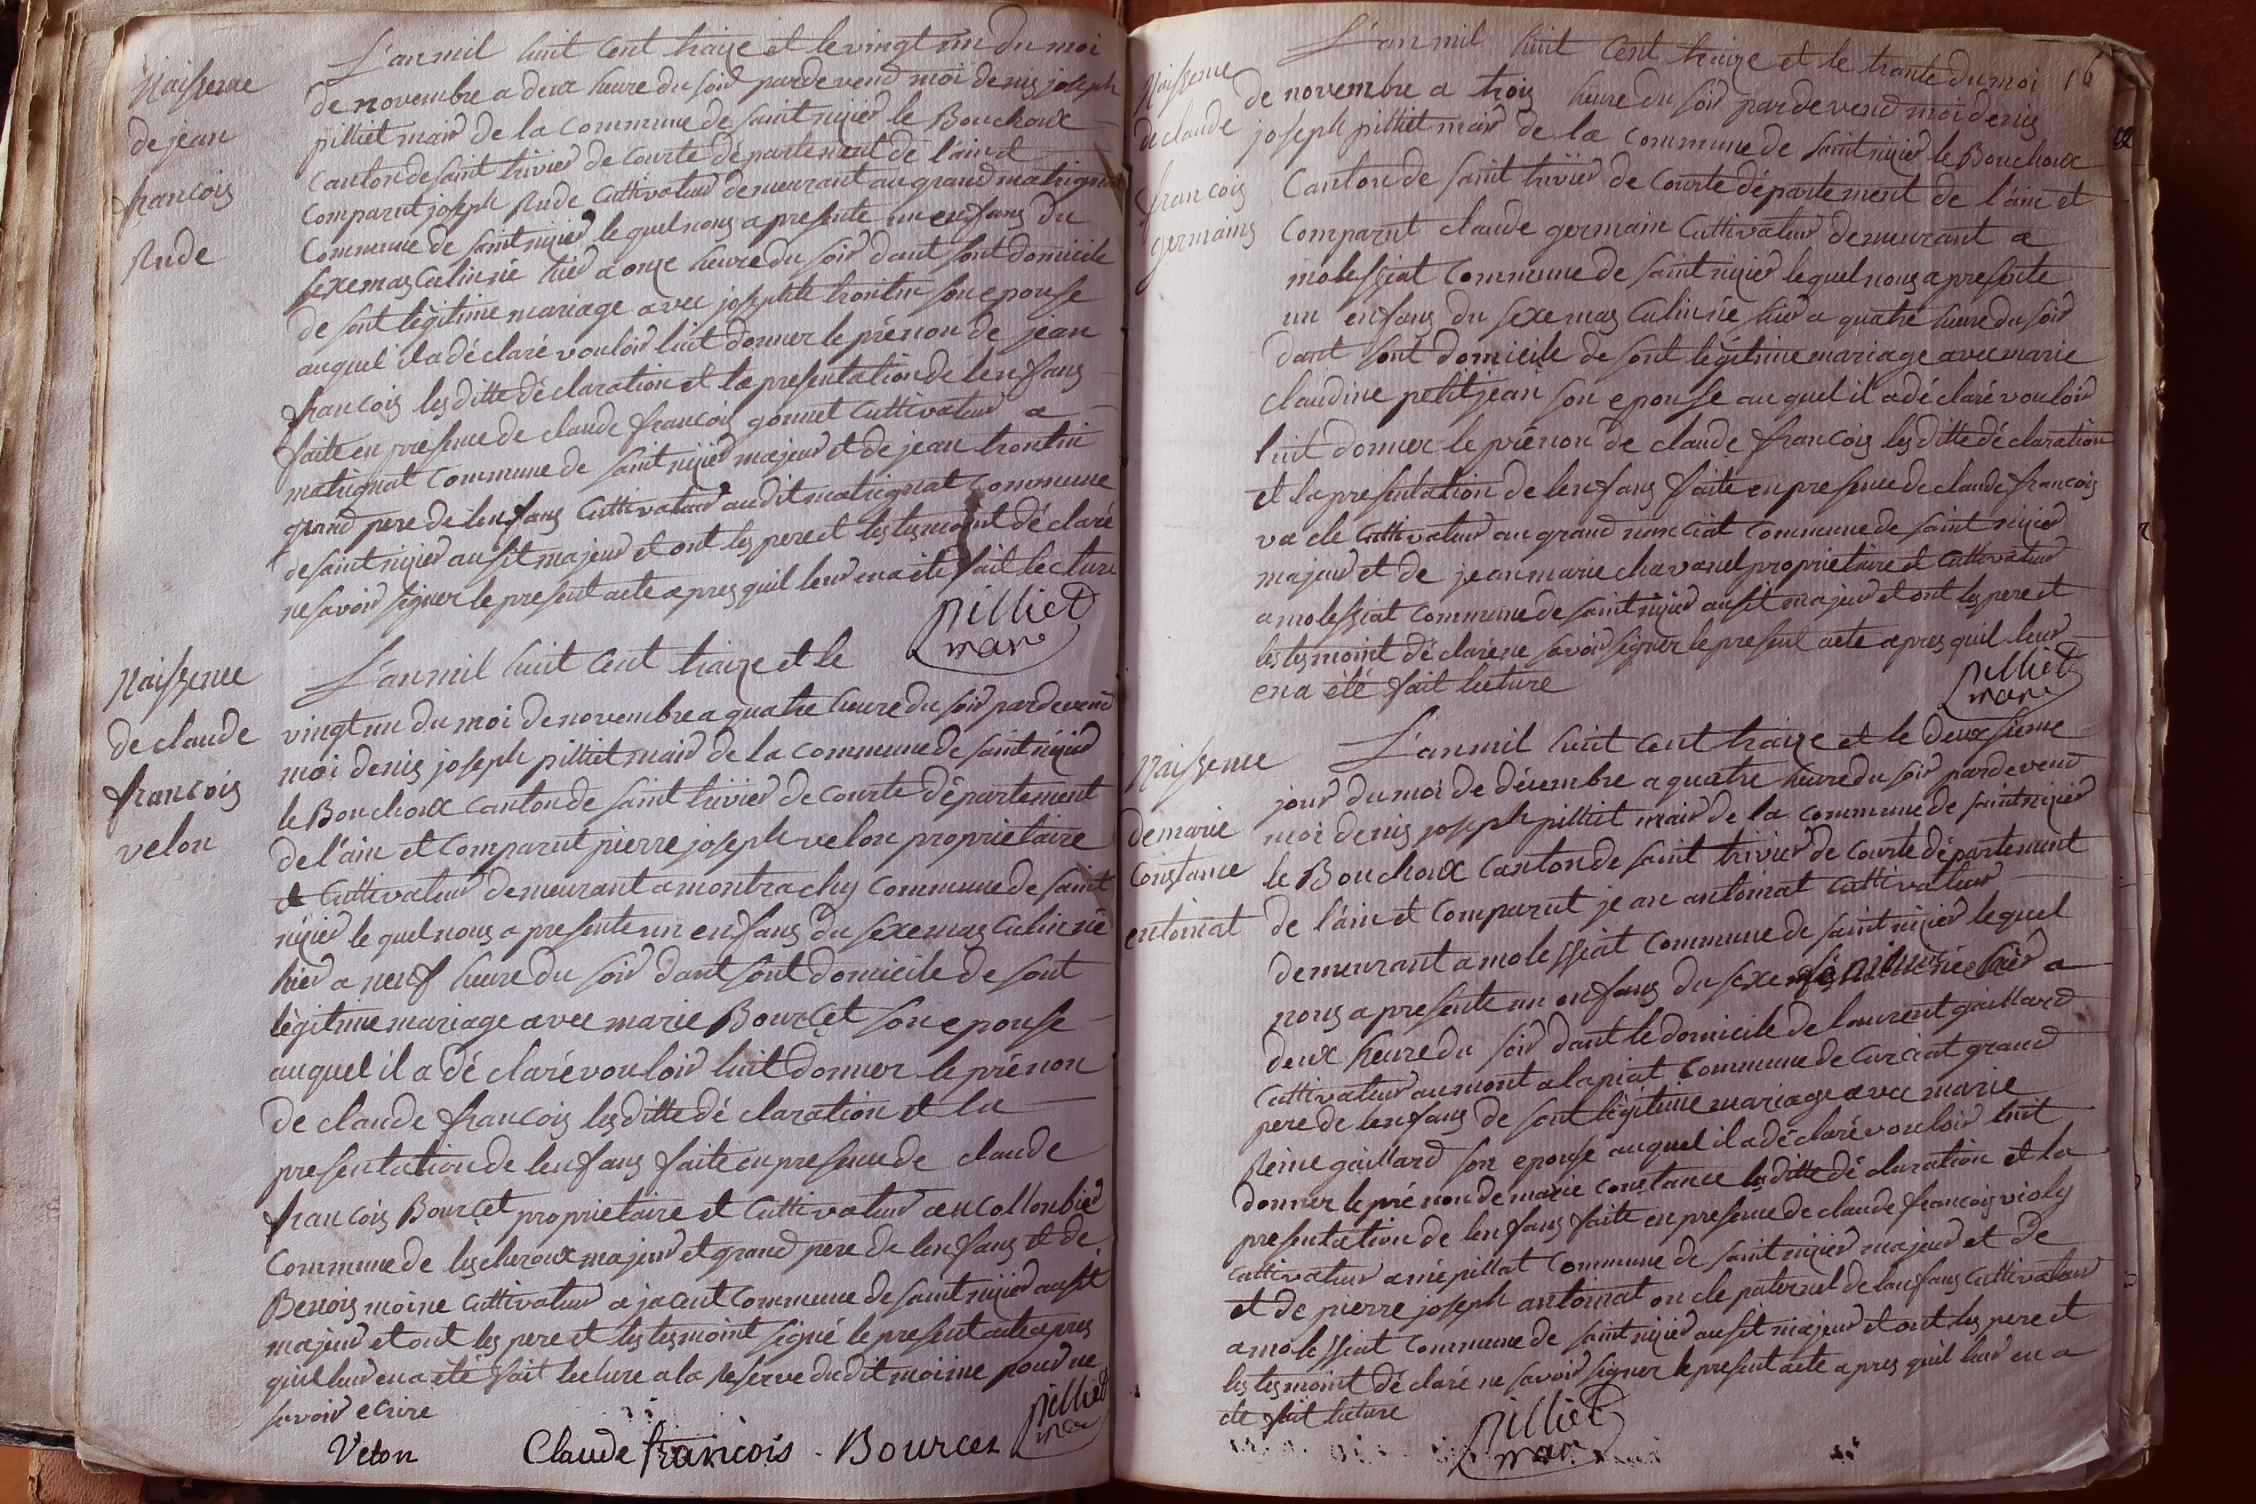 Naissence
de jean
francois
Rude
L'an mil huit cent traize et le vingt un du moi
de novembre a deux heure du soir pardevend moi denis joseph
pilliet mair de la commune de saint nizier le Bouchoux
canton de saint trivier de courte département de l'ain et
comparut joseph Rude cultivateur demeurant au grand matrignat
commune de saint nizier le quel nous a presente un enfans du
sexe masculin né hier a onze heure du soir dant sont domicile
de sont légitime mariage avec josephte trontin son epouse
auquel il a déclaré vouloir luit donner le prénon de jean
francois les ditte déclaration et la presentation de lenfans
faite en presence de claude francois gonnet cultivateur a
matrignat commune de saint nizier majeur et de jean trontin
grand pere de lenfans cultivateur audit matrignat commune
de saint nizier ausit majeur et ont les pere et les tesmoint déclaré
ne savoir signer le present acte apres quil leur en a été fait lecture
pilliet
mair
Naissence
de claude
francois
velon
L'an mil huit cent traize et le
vingt un du moi de novembre a quatre heure du soir pardevend
moi denis joseph pilliet mair de la commune de saint nizier
le Bouchoux canton de saint trivier de courte département
de l'ain et comparut pierre joseph velon proprietaire
et cultivateur demeurant a montrachy commune de saint
nizier le quel nous a presente un enfans du sexe masculin né
hier a neuf heure du soir dant sont domicile de sont
légitime mariage avec marie Bourcet son epouse
auquel il a déclaré vouloir luit donner le prénon
de claude francois les ditte déclaration et la
presentation de lenfans faite en presence de claude
francois Bourcet proprietaire et cultivateur au collonbier
commune de lescheroux majeur et grand pere de lenfans et de
Benois moine cultivateur a jacent commune de saint nizier ausit
majeur et ont les pere et les tesmoint signé le present acte apres
quil leur en a été fait lecture a la reserve dudit moine pour ne
savoir ecrire
Velon Claude francois Bourcet pilliet
mair
16
Naissence
de claude
francois
germains
L'an mil huit cent traize et le trante du moi
de novembre a trois heure du soir pardevend moi denis
joseph pilliet mair de la commune de saint nizier le Bouchoux
canton de saint trivier de courte département de l'ain et
comparut claude germain cultivateur demeurant a
molessiat commune de saint nizier le quel nous a presente
un enfans du sexe masculin né hier a quatre heure du soir
dant sont domicile de sont légitime mariage avec marie
claudine petitjean son epouse auquel il a déclaré vouloir
luit donner le prénon de claude francois les ditte déclaration
et la presentation de lenfans faite en presence de claude francois
vacle cultivateur au grand nanciat commune de saint nizier
majeur et de jean marie chavanel proprietaire et cultivateur
a molessiat commune de saint nizier ausit majeur et ont les pere et
les tesmoint déclaré ne savoir signer le present acte apres quil leur
en a été fait lecture
pilliet
mair
Naissence
de marie
Constance
entoinat
L'an mil huit cent traize et le deuxsieme
jour du moi de décembre a quatre heure du soir pardevend
moi denis joseph pilliet mair de la commune de saint nizier
le Bouchoux canton de saint trivier de courte département
de l'ain et comparut jean antoinat cultivateur
demeurant a molessiat commune de saint nizier le quel
nous a presente un enfans du sexe né hier a
deux heure du soir dant le domicile de laurent gaillard
cultivateur au mont alapiat commune de curciat grand
pere de lenfans de sont légitime mariage avec marie
Reine gaillard son epouse auquel il a déclaré vouloir luit
donner le prénon de marie constance les ditte déclaration et la
presentation de lenfans faite en presence de claude francois violy
cultivateur a mépillat commune de saint nizier majeur et de
et de pierre joseph antoinat oncle paternel de lanfans cultivateur
a moléssiat commune de saint nizier ausit majeur et ont les pere et
les tesmoint déclaré ne savoir signer le present acte apres quil leur en a
été fait lecture
pilliet
mair